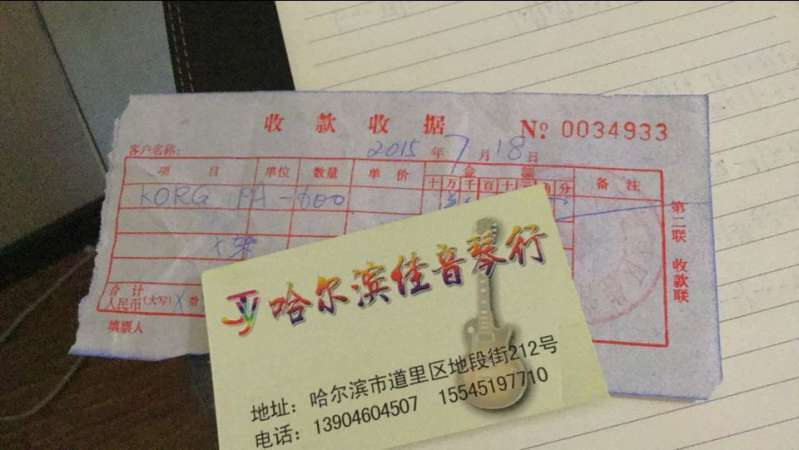 收款收据 № 0034933
客户名称： 2015 年 7 月 18 日
项目 单位 数量 单价 金额 备注
十 万 千 百 十 角 分
KORG PA-600
合计
人民币(大写)
填票人
第二联 收款联
Jy 哈尔滨佳音琴行
地址：哈尔滨市道里区地段街212号
电话：13904604507 15545197710